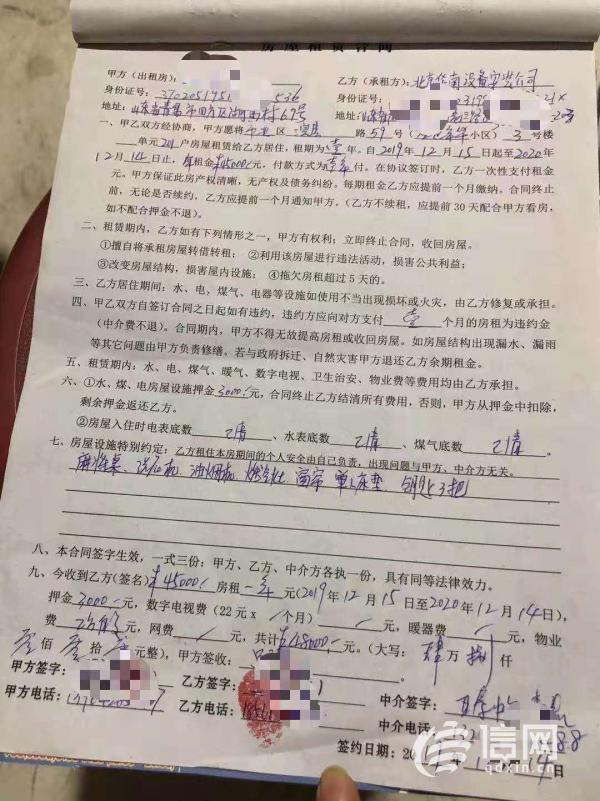 房屋租赁合同
甲方（出租房）：
乙方（承租方）：北京
设备安装公司
身份证号：3702051951 536
身份证号： 03195 21X
地址：山东省青岛市四方区 村69号
地址：山东
一、甲乙双方经协商，甲方愿将 区 路59号（ 小区）3号楼
单元201户房屋租赁给乙方居住，租期为壹年。自2019年12月15日起至2020年
12月14日止，年租金¥45000/，付款方式为壹年付。在协议签订时，乙方一次性支付租金
元。甲方保证此房产权清晰，无产权及债务纠纷。每期租金乙方应提前一个月缴纳。合同终止
前，无论是否续约，乙方应提前一个月通知甲方。（乙方不续租，应提前30天配合甲方看房，
如不配合押金不退）。
二、租赁期内，乙方如有下列情形之一，甲方有权利；立即终止合同，收回房屋。
①擅自将承租房屋转借转租； ②利用该房屋进行违法活动，损害公共利益；
③改变房屋结构，损害屋内设施； ④拖欠房租超过5天的。
三、乙方居住期间：水、电、煤气、电器等设施如使用不当出现损坏或火灾，由乙方修复或承担。
四、甲乙双方自签订合同之日起如有违约，违约方应向对方支付 壹 个月的房租为违约金
（中介费不退）。合同期内，甲方不得无故提高房租或收回房屋。如房屋结构出现漏水、漏雨
等其它问题由甲方负责修缮。若与政府拆迁、自然灾害甲方退还乙方余期租金。
五、租赁期内：水、电、煤气、暖气、数字电视、卫生治安、物业费等费用均由乙方承担。
六、①水、煤、电房屋设施押金3000/元，合同终止乙方结清所有费用，否则，甲方从押金中扣除，
剩余押金返还乙方。
②房屋入住时电表底数 已清 、水表底数 已清 、煤气底数 已清 。
七、房屋设施特别约定：乙方租住本房期间的个人安全由自己负责，出现问题与甲方、中介方无关。
、洗衣机、油烟机、燃气灶、窗帘、单人床垫、钥匙3把
八、本合同签字生效，一式三份：甲方、乙方、中介方各执一份，具有同等法律效力。
九、今收到乙方（签名）¥45000/ 房租一年元（2019年12月15日至2020年12月14日），
押金3000/元，数字电视费（22元x / 个月） / 元，暖器费 / 元，物业
费 元，网费 / 元，共计¥48000/元。（大写：肆万捌仟
零佰零拾零元整），甲方签收：
甲方签字：
乙方签字：
中介签字：
甲方电话：
乙方电话：
中介电话：
签约日期：20 年 1 14日
信网
qdxin.cn